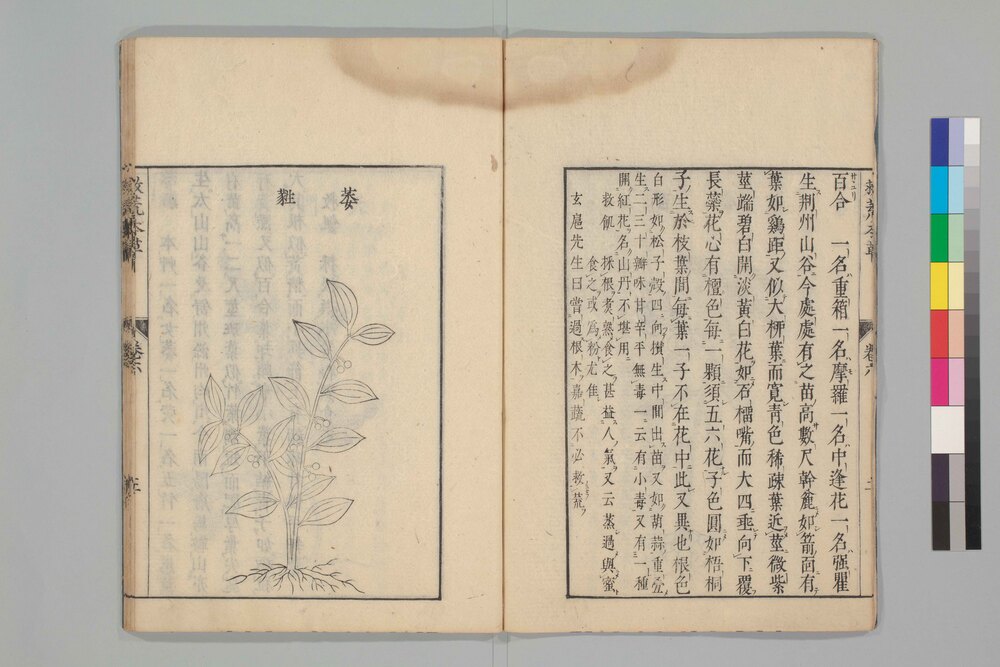 百合 一名重箱一名摩羅一名中逢花一名强瞿
生荆州山谷今處處有之苗高數尺幹麄如箭靣有
葉如鷄距又似大栁葉而寛青色稀疎葉近莖微紫
莖端碧白開淡黃白花如石榴嘴而大四垂向下覆
長蘂花心有檀色每一顆須五六花子色圓如梧桐
子生於枝葉間每葉一子不在花中此又異也根色
白形如松子殼四向攢生中間出苗又如葫蒜重疊
生二三十瓣味甘辛平無毒一云有小毒又有一種
開紅花名山丹不堪用
救飢 採根煮熟食之甚益人氣又云蒸過與蜜
食之或為粉尤佳
玄扈先生曰嘗過根木嘉蔬不必救荒
卷六
萎
蕤
卷六